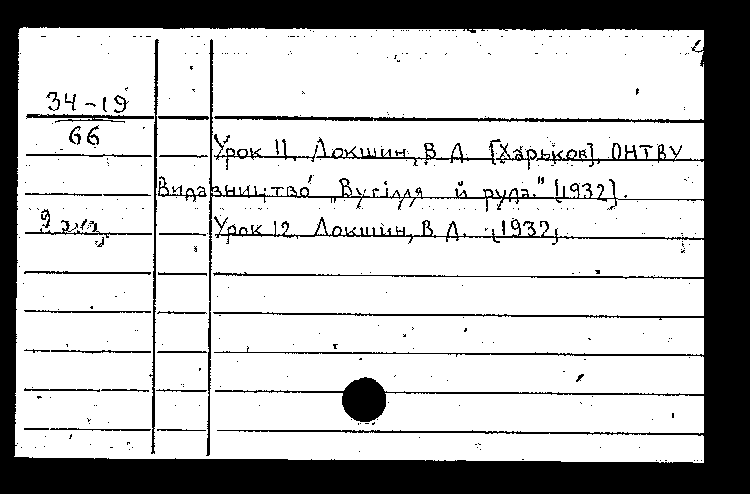 4
34-19
66
Урок 11. Локшин, В. Д. [Харьков], ОНТВУ
Видавництво "Вугілля й руда." [1932].
2 экз.
Урок 12. Локшин, В. Д. [1932]